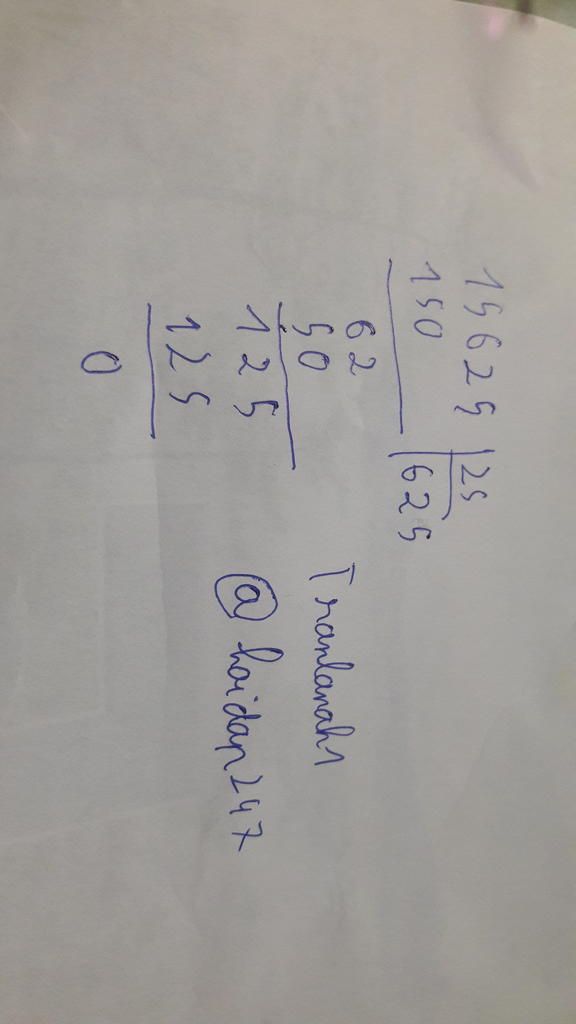 15625 | 25
150 | 625
62
50
125
125
0
Tranlanah1
@hoidap247